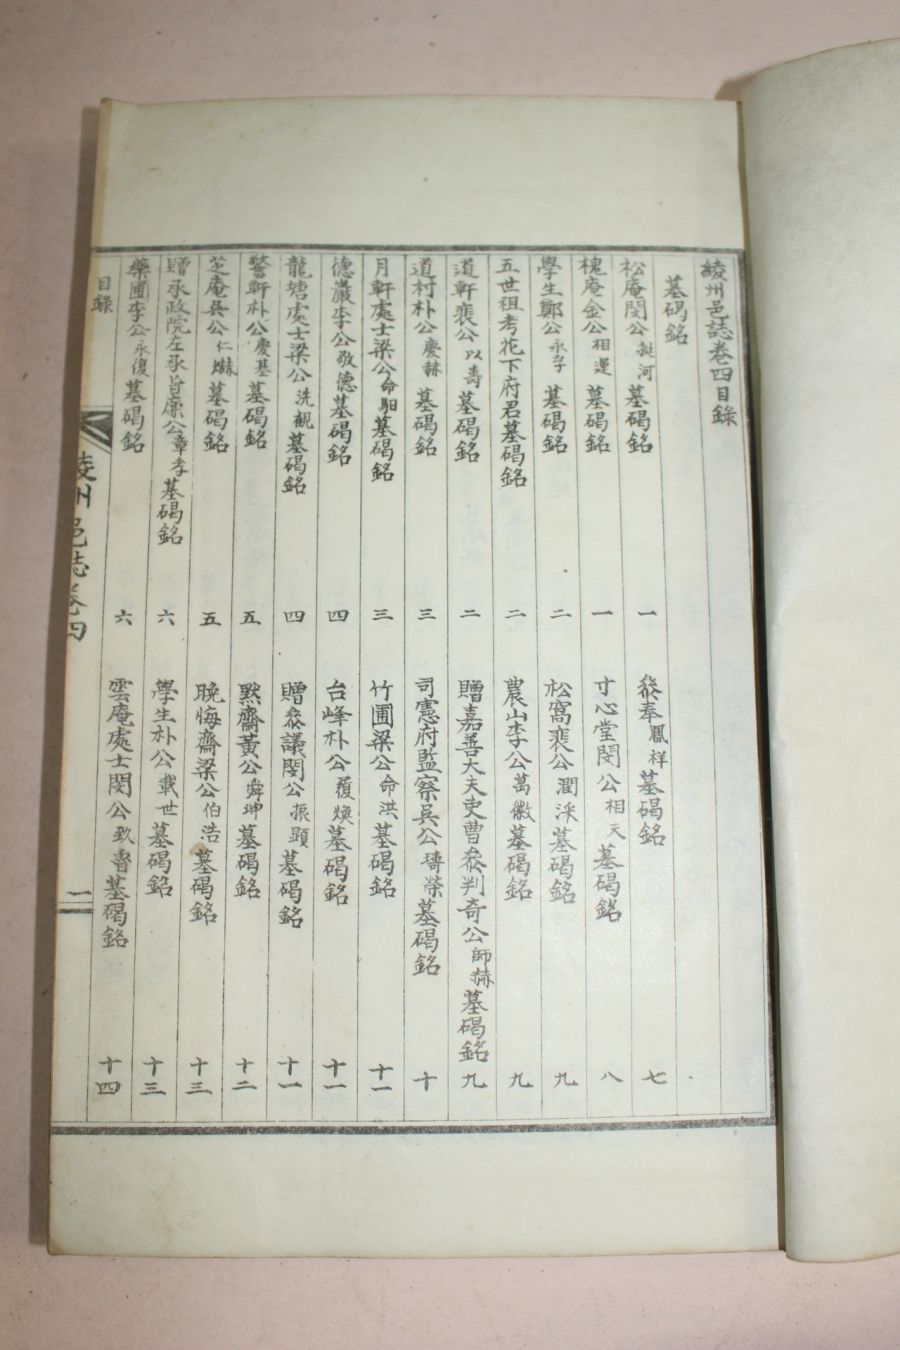 綾州邑誌卷四目錄
墓碣銘
松庵閔公挺河墓碣銘 一
槐庵金公相運墓碣銘 一
學生鄭公永孚墓碣銘 二
五世祖考花下府君墓碣銘 二
道軒裵公以壽墓碣銘 二
道村朴公慶赫墓碣銘 三
月軒處士梁公命馹墓碣銘 三
德巖李公敬德墓碣銘 四
龍塘處士梁公洗觀墓碣銘 四
警軒朴公慶基墓碣銘 五
芝庵吳公仁爀墓碣銘 五
贈承政院左承旨廉公章孝墓碣銘 六
藥圃李公永復墓碣銘 六
叅奉鳳祥墓碣銘 七
寸心堂閔公相天墓碣銘 八
松窩裵公潤采墓碣銘 九
農山李公萬徽墓碣銘 九
贈嘉善大夫吏曹叅判奇公師赫墓碣銘 九
司憲府監察吳公璹榮墓碣銘 十
竹圃梁公命洪墓碣銘 十一
台峰朴公履煥墓碣銘 十一
贈叅議閔公振顯墓碣銘 十一
默齋黃公舜坤墓碣銘 十二
晚悔齋梁公伯浩墓碣銘 十三
學生朴公載世墓碣銘 十三
雲庵處士閔公致魯墓碣銘 十四
目錄
綾州邑誌卷四
一